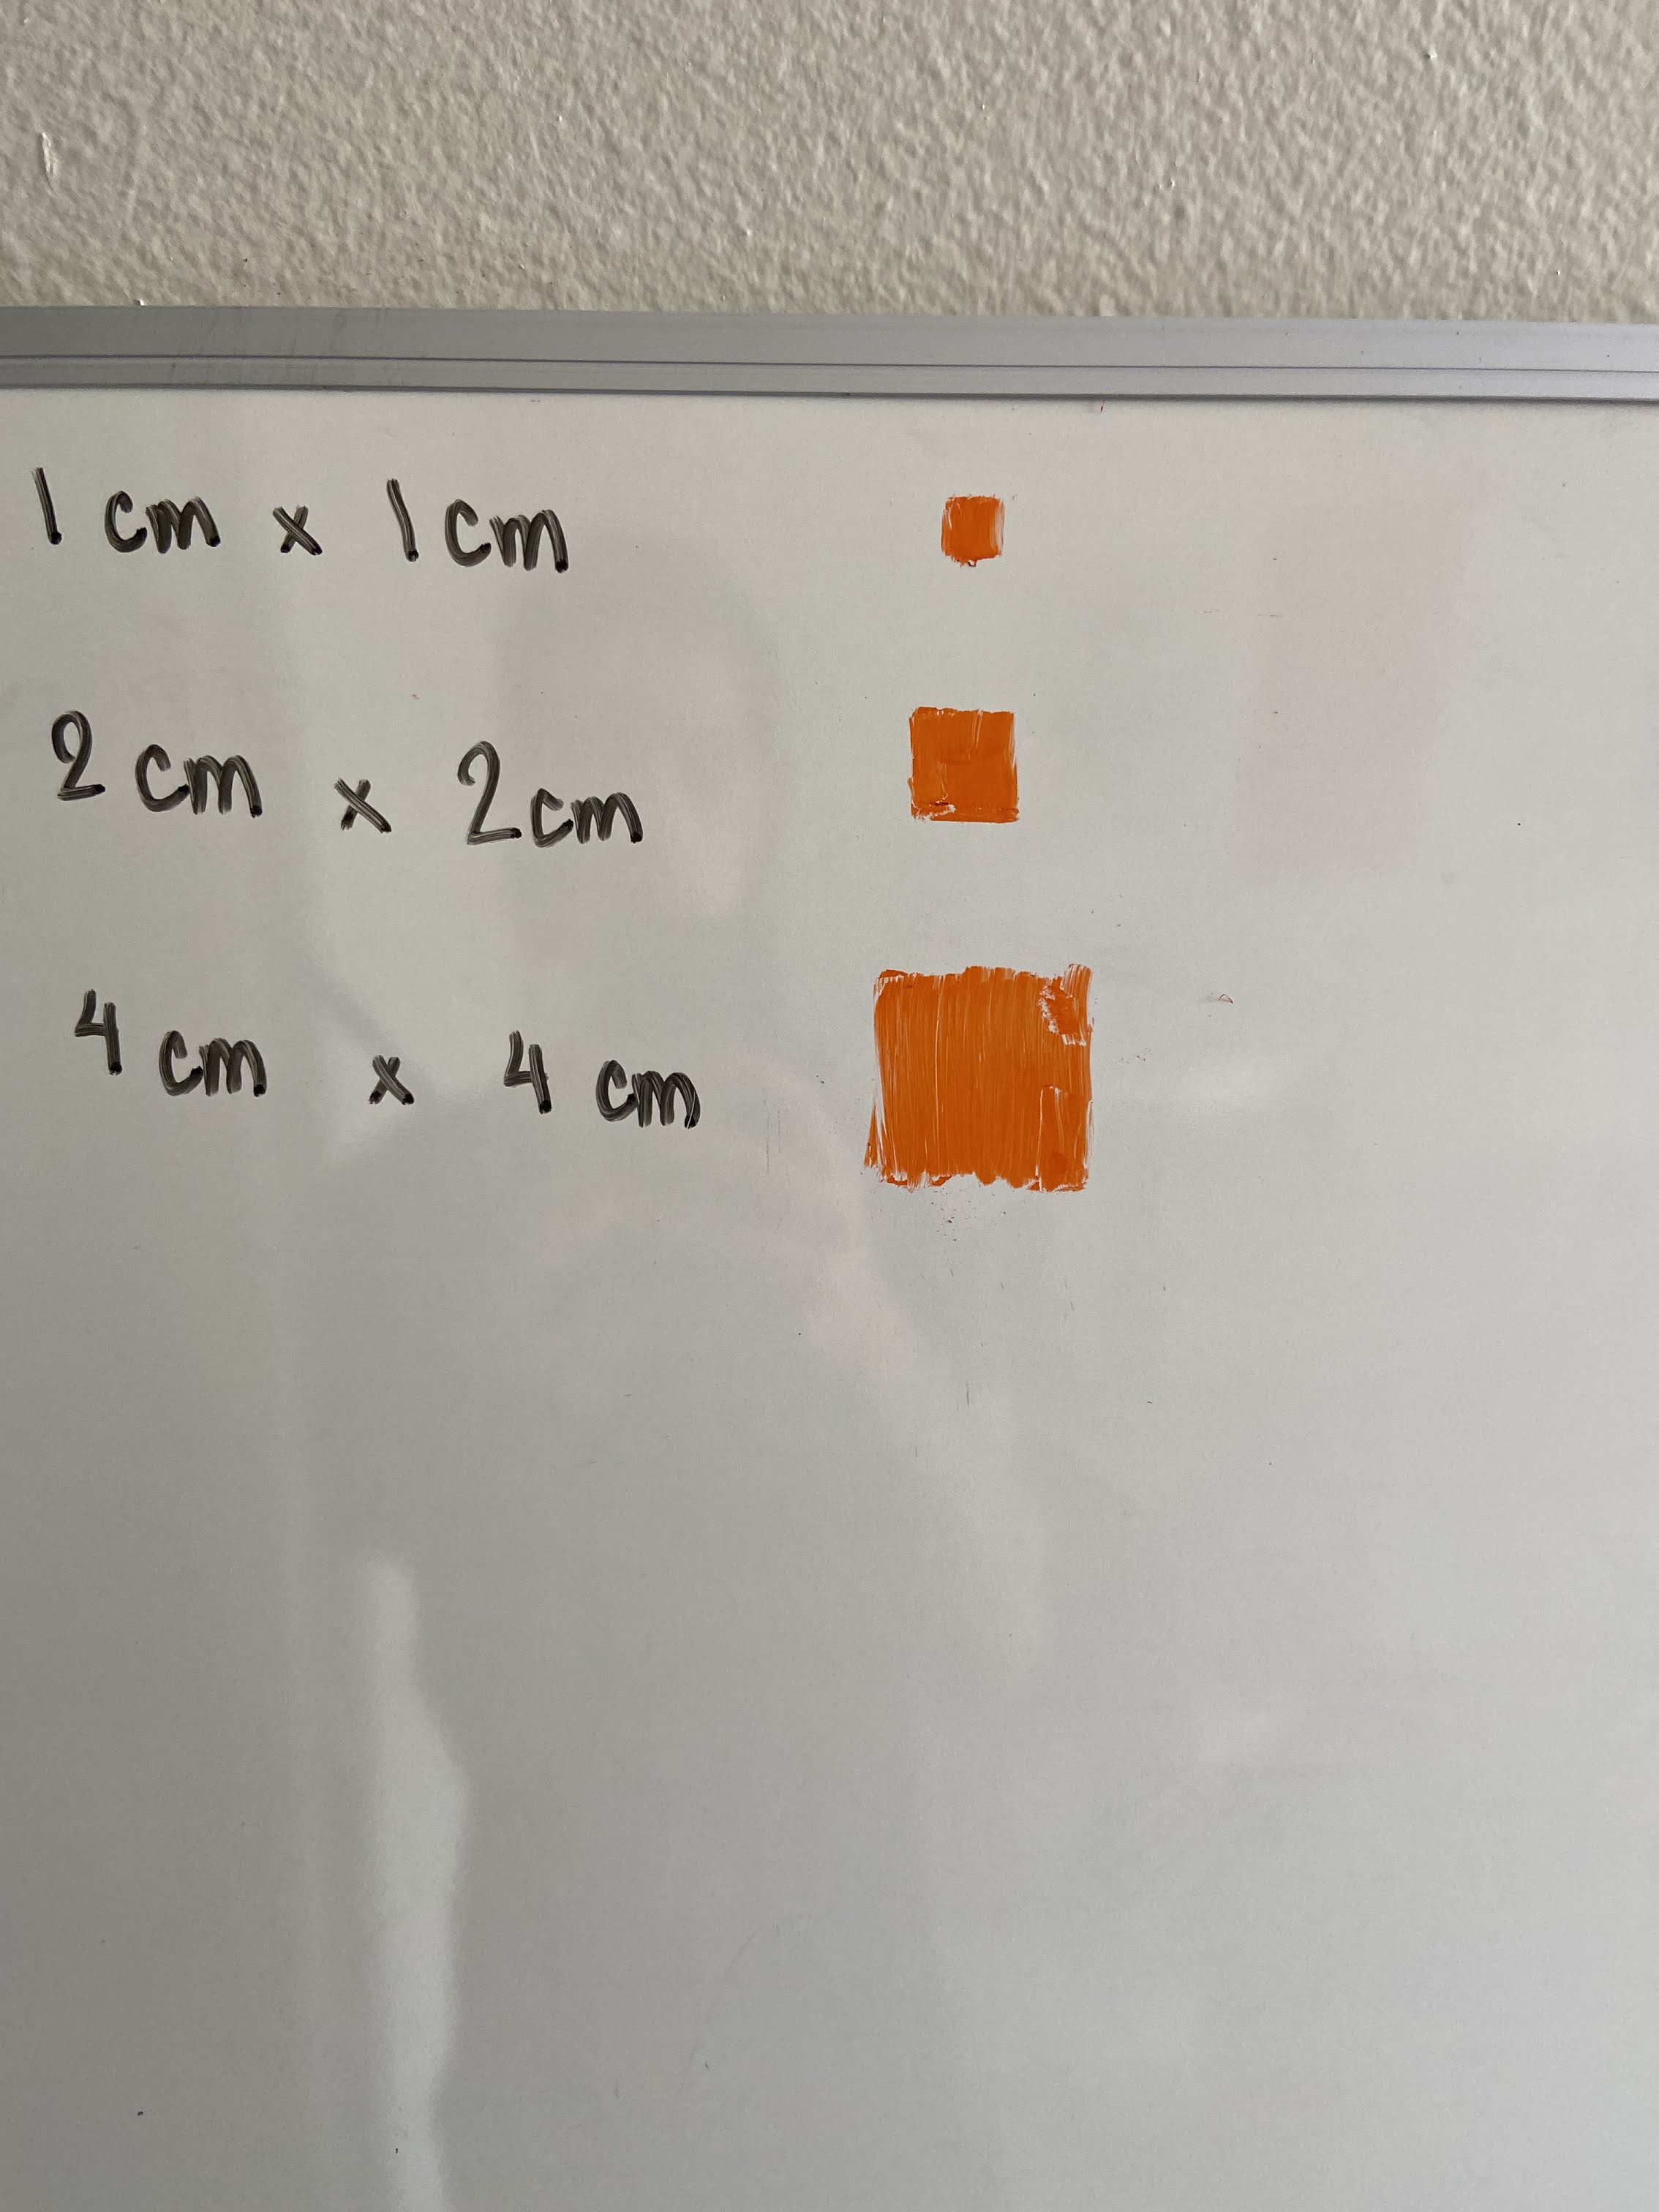 1 cm x 1 cm
2 cm x 2 cm
4 cm x 4 cm